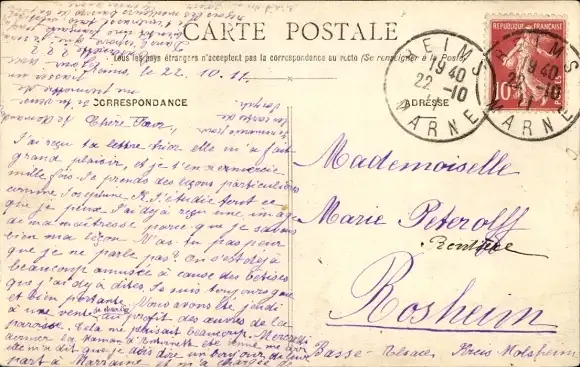 CARTE POSTALE
Tous les pays étrangers n'acceptent pas la correspondance au recto (Se renseigner à la Poste)
REPUBLIQUE FRANÇAISE
10
REIMS
19 40
22 -10
11
MARNE
REIMS
19 40
22 -10
MARNE
CORRESPONDANCE
ADRESSE
Reims, le 22. 10. 11.
Chère Soeur,
J'ai reçu ta lettre hier elle m'a fait
grand plaisir, et je t'en remercie
mille fois. Je prends des leçons particulières
comme Joséphine K. J'étudie tout ce
que je peux. J'ai déjà reçu une image
de ma maîtresse parce que je savais
bien ma leçon. N'as-tu pas peur
que je ne parle pas? On s'est déjà
beaucoup amusée à cause des bêtises
que j'ai déjà dites. Je suis toujours gaie
et bien portante. Nous avons été jeudi
à une vente de charité au profit des œuvres de la
paroisse. Cela me plaisait beaucoup. Mercredi
dernier la maman d'Antoinette est venue me voir
elle m'a dit que je dois dire un bonjour de leur
part à Marraine et m'a chargée de
Mademoiselle
Marie Peterolff
Rentière
Rosheim
Basse-Alsace Kreis Molsheim